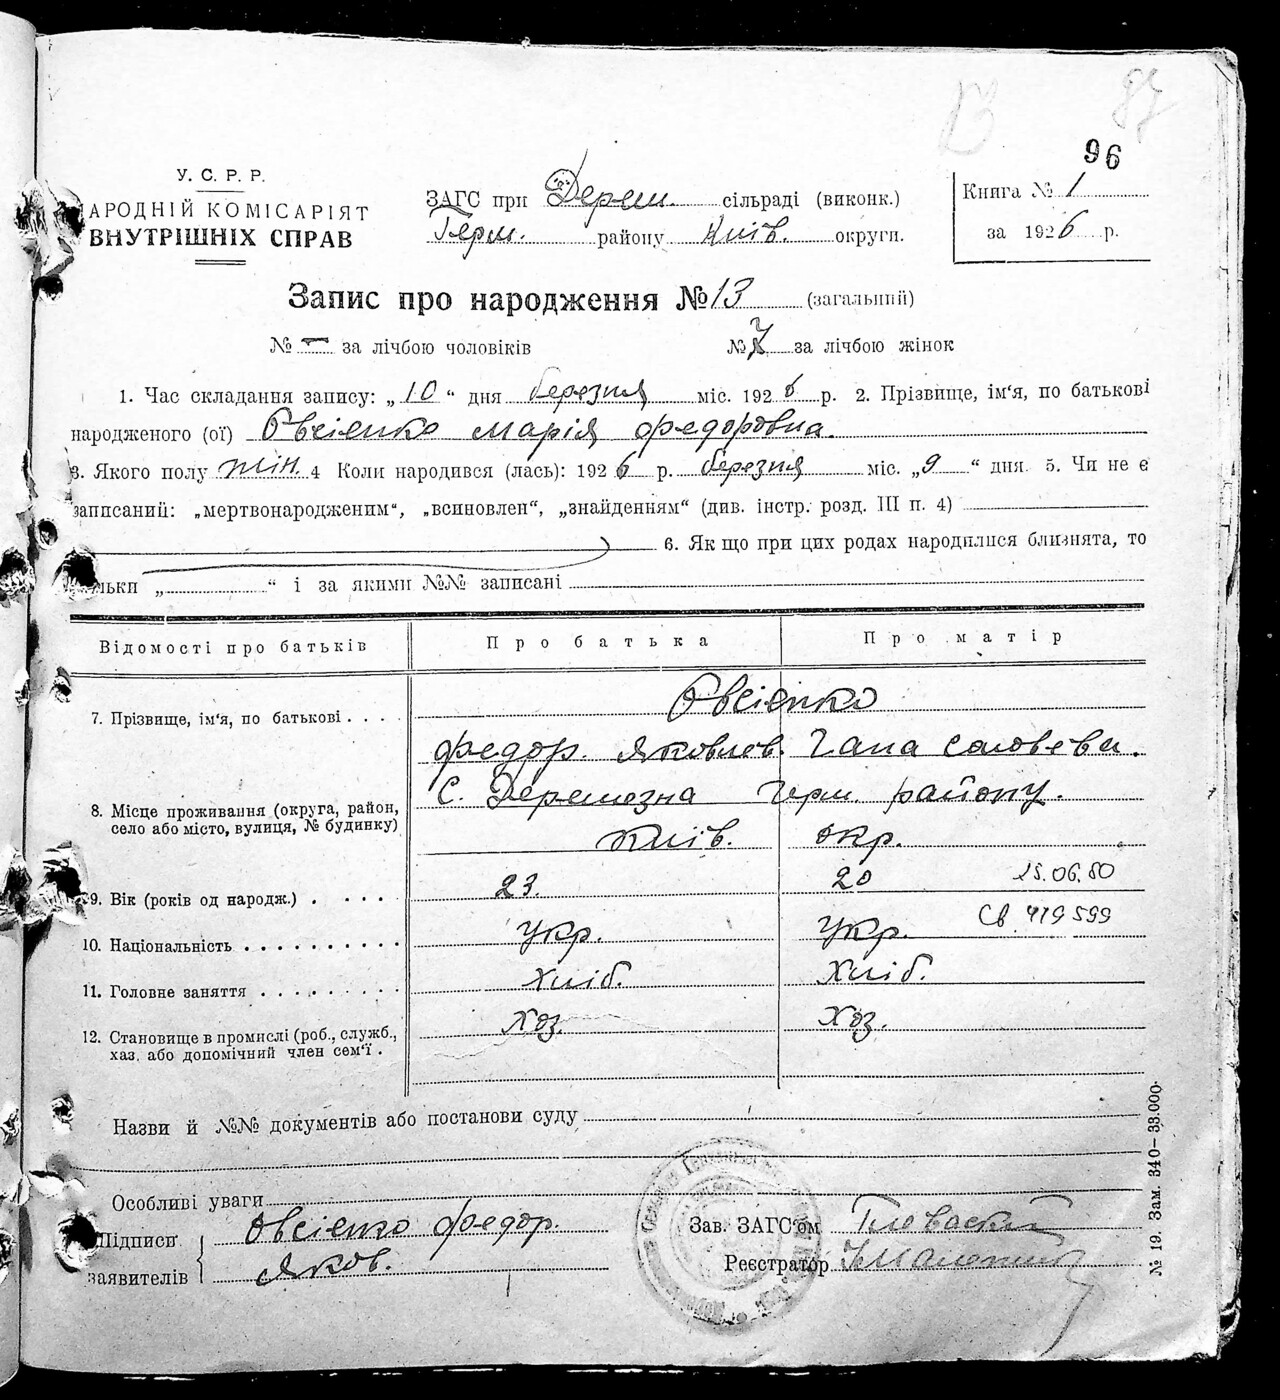 96
У. С. Р. Р.
АРОДНІЙ КОМІСАРІЯТ
ВНУТРІШНІХ СПРАВ
ЗАГС при Дерем. сільраді (виконк.)
Герм. району Київ. округи.
Книга № 1
за 1926 р.
Запис про народження № 13 (загальний)
№ — за лічбою чоловіків № 7 за лічбою жінок
1. Час складання запису: „ 10 “ дня березня міс. 1926 р. 2. Прізвище, ім‘я, по батькові
народженого (ої) Овсієнко Марія Федоровна.
3. Якого полу жін. 4 Коли народився (лась): 1926 р. березня міс. „ 9 “ дня. 5. Чи не є
записаний: „мертвонародженим“, „всиновлен“, „знайденням“ (див. інстр. розд. III п. 4)
6. Як що при цих родах народилися близнята, то
льки „ “ і за якими №№ записані
Відомості про батьків Про батька Про матір
7. Прізвище, ім‘я, по батькові . . . . Овсієнко
Федор. Яковлев. Гана Соловеєви.
8. Місце проживання (округа, район, село або місто, вулиця, № будинку) С. Деремезна Герм. району.
Київ. окр.
9. Вік (років од народж.) . . . . . 23. 20 25.06.80
10. Національність . . . . . . . . . . Укр. Укр. Св. 419599
11. Головне заняття . . . . . . . . . Хліб. Хліб.
12. Становище в промислі (роб., служб., хаз. або допомічний член сем‘ї . Хоз. Хоз.
Назви й №№ документів або постанови суду
Особливі уваги
Підписи заявителів Овсієнко Федор.
Яков.
Зав. ЗАГС‘ом
Реєстратор
№ 19. Зам. 340—33.000.